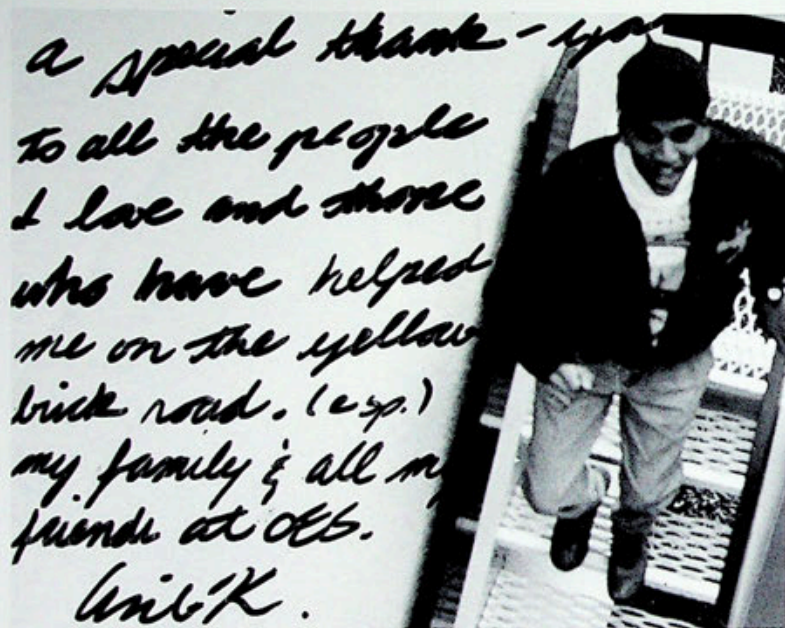 a special thank-you
to all the people
I love and those
who have helped
me on the yellow
brick road. (esp.)
my family & all my
friends at OES.